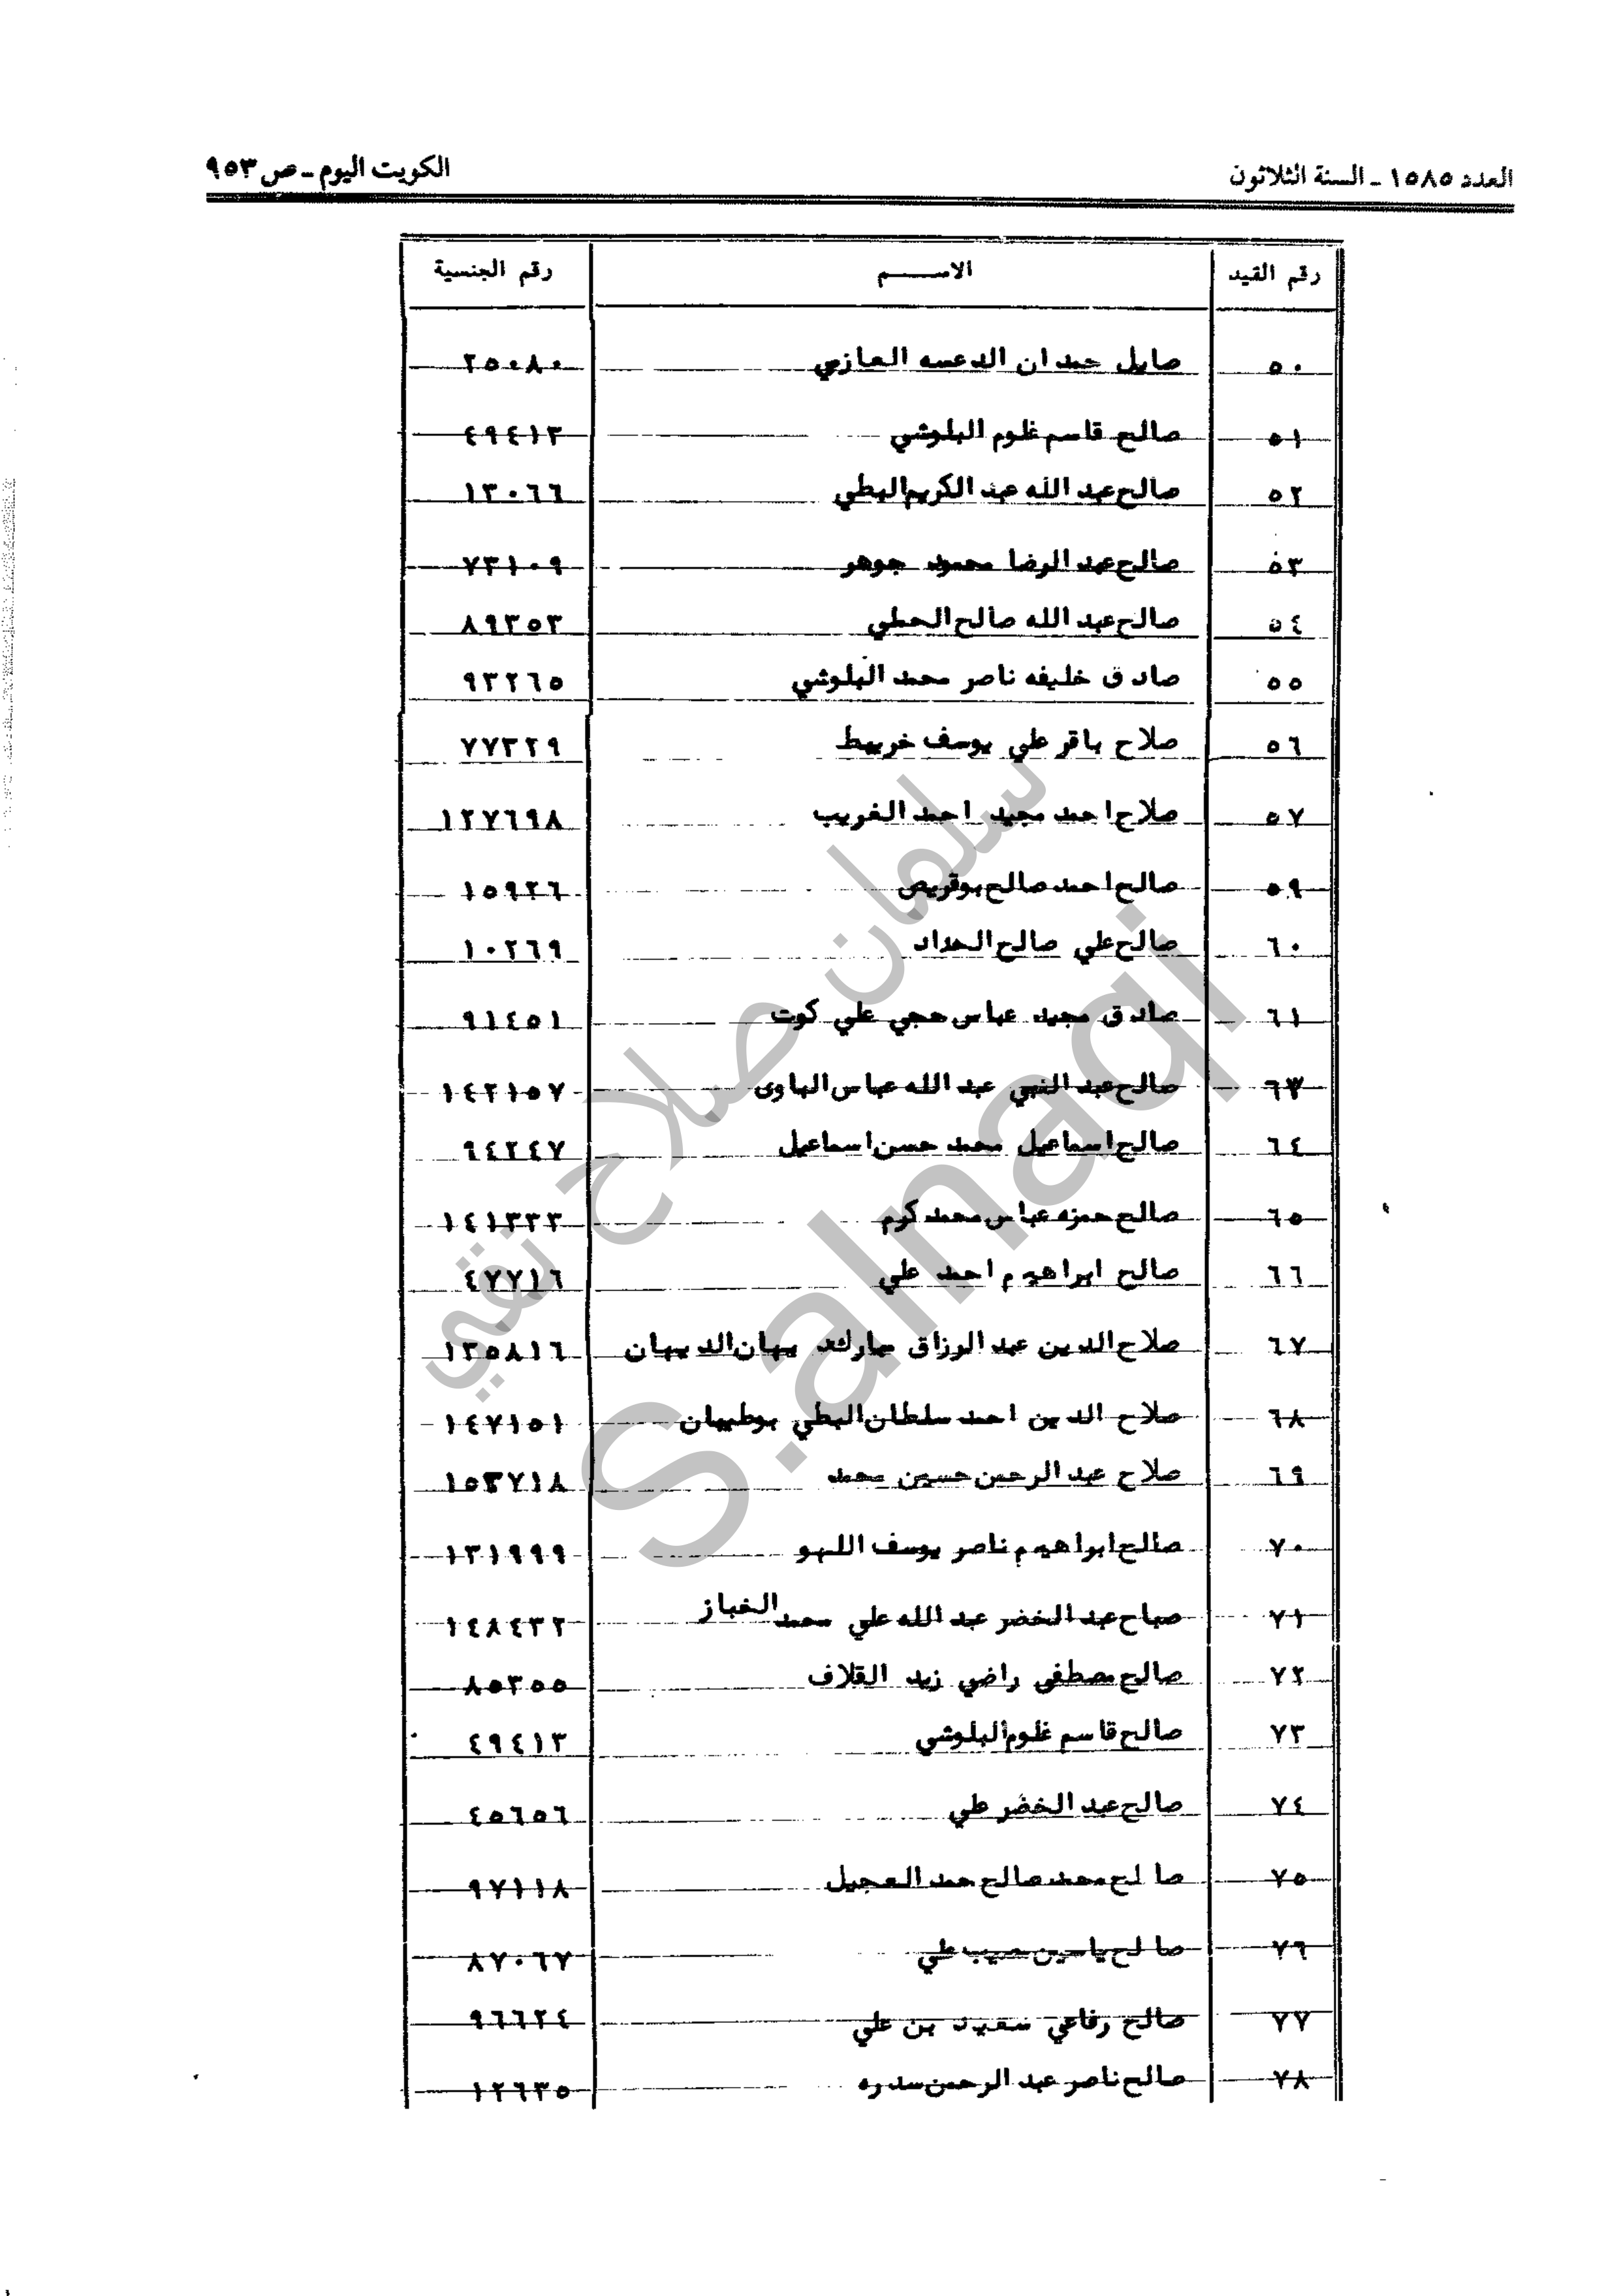 العدد ١٥٨٥ ـ السنة الثلاثون
الكويت اليوم ـ ص ٩٥٣
رقم القيد الاســــم رقم الجنسية
٥٠ صايل حمدان الدعسه العازمي ٢٥٠٨٠
٥١ صالح قاسم غلوم البلوشي ٤٩٤١٣
٥٢ صالح عبد الله عبد الكريم البطي ١٣٠٦٦
٥٣ صالح عبد الرضا محمود جوهر ٧٣١٠٩
٥٤ صالح عبد الله صالح الحطي ٨٩٣٥٣
٥٥ صادق خليفه ناصر محمد البلوشي ٩٣٢٦٥
٥٦ صلاح باقر علي يوسف خريبط ٧٧٣٢٩
٥٧ صلاح احمد مجيد احمد الغريب ١٢٧٦٩٨
٥٩ صالح احمد صالح بوقريص ١٥٩٢٦
٦٠ صالح علي صالح الحداد ١٠٢٦٩
٦١ صادق مجيد عباس حجي علي كوت ٩١٤٥١
٦٣ صالح عبد النبي عبد الله عباس الباوى ١٤٢١٥٧
٦٤ صالح اسماعيل محمد حسن اسماعيل ٩٤٢٤٧
٦٥ صالح حمزه عباس محمد كرم ١٤١٣٣٣
٦٦ صالح ابراهيم احمد علي ٤٧٧١٦
٦٧ صلاح الدين عبد الرزاق مبارك بيهان الدبيهان ١٣٥٨١٦
٦٨ صلاح الدين احمد سلطان البطي بوطيبان ١٤٧١٥١
٦٩ صلاح عبد الرحمن حسين محمد ١٥٣٧١٨
٧٠ صالح ابراهيم ناصر يوسف اللهو ١٣١٩٩٩
٧١ صباح عبد الخضر عبد الله علي محمد الخباز ١٤٨٤٣٢
٧٢ صالح مصطفى راضي زيد القلاف ٨٥٣٥٥
٧٣ صالح قاسم غلوم البلوشي ٤٩٤١٣
٧٤ صالح عبد الخضر علي ٤٥٦٥٦
٧٥ صالح محمد صالح حمد العجيل ٩٧١١٨
٧٦ صالح ياسين حبيب علي ٨٧٠٦٧
٧٧ صالح رفاعي سعيد بن علي ٩٦٦٢٤
٧٨ صالح ناصر عبد الرحمن سدره ١٢٦٣٥
سلمان صلاح نقي
S.alnaqi